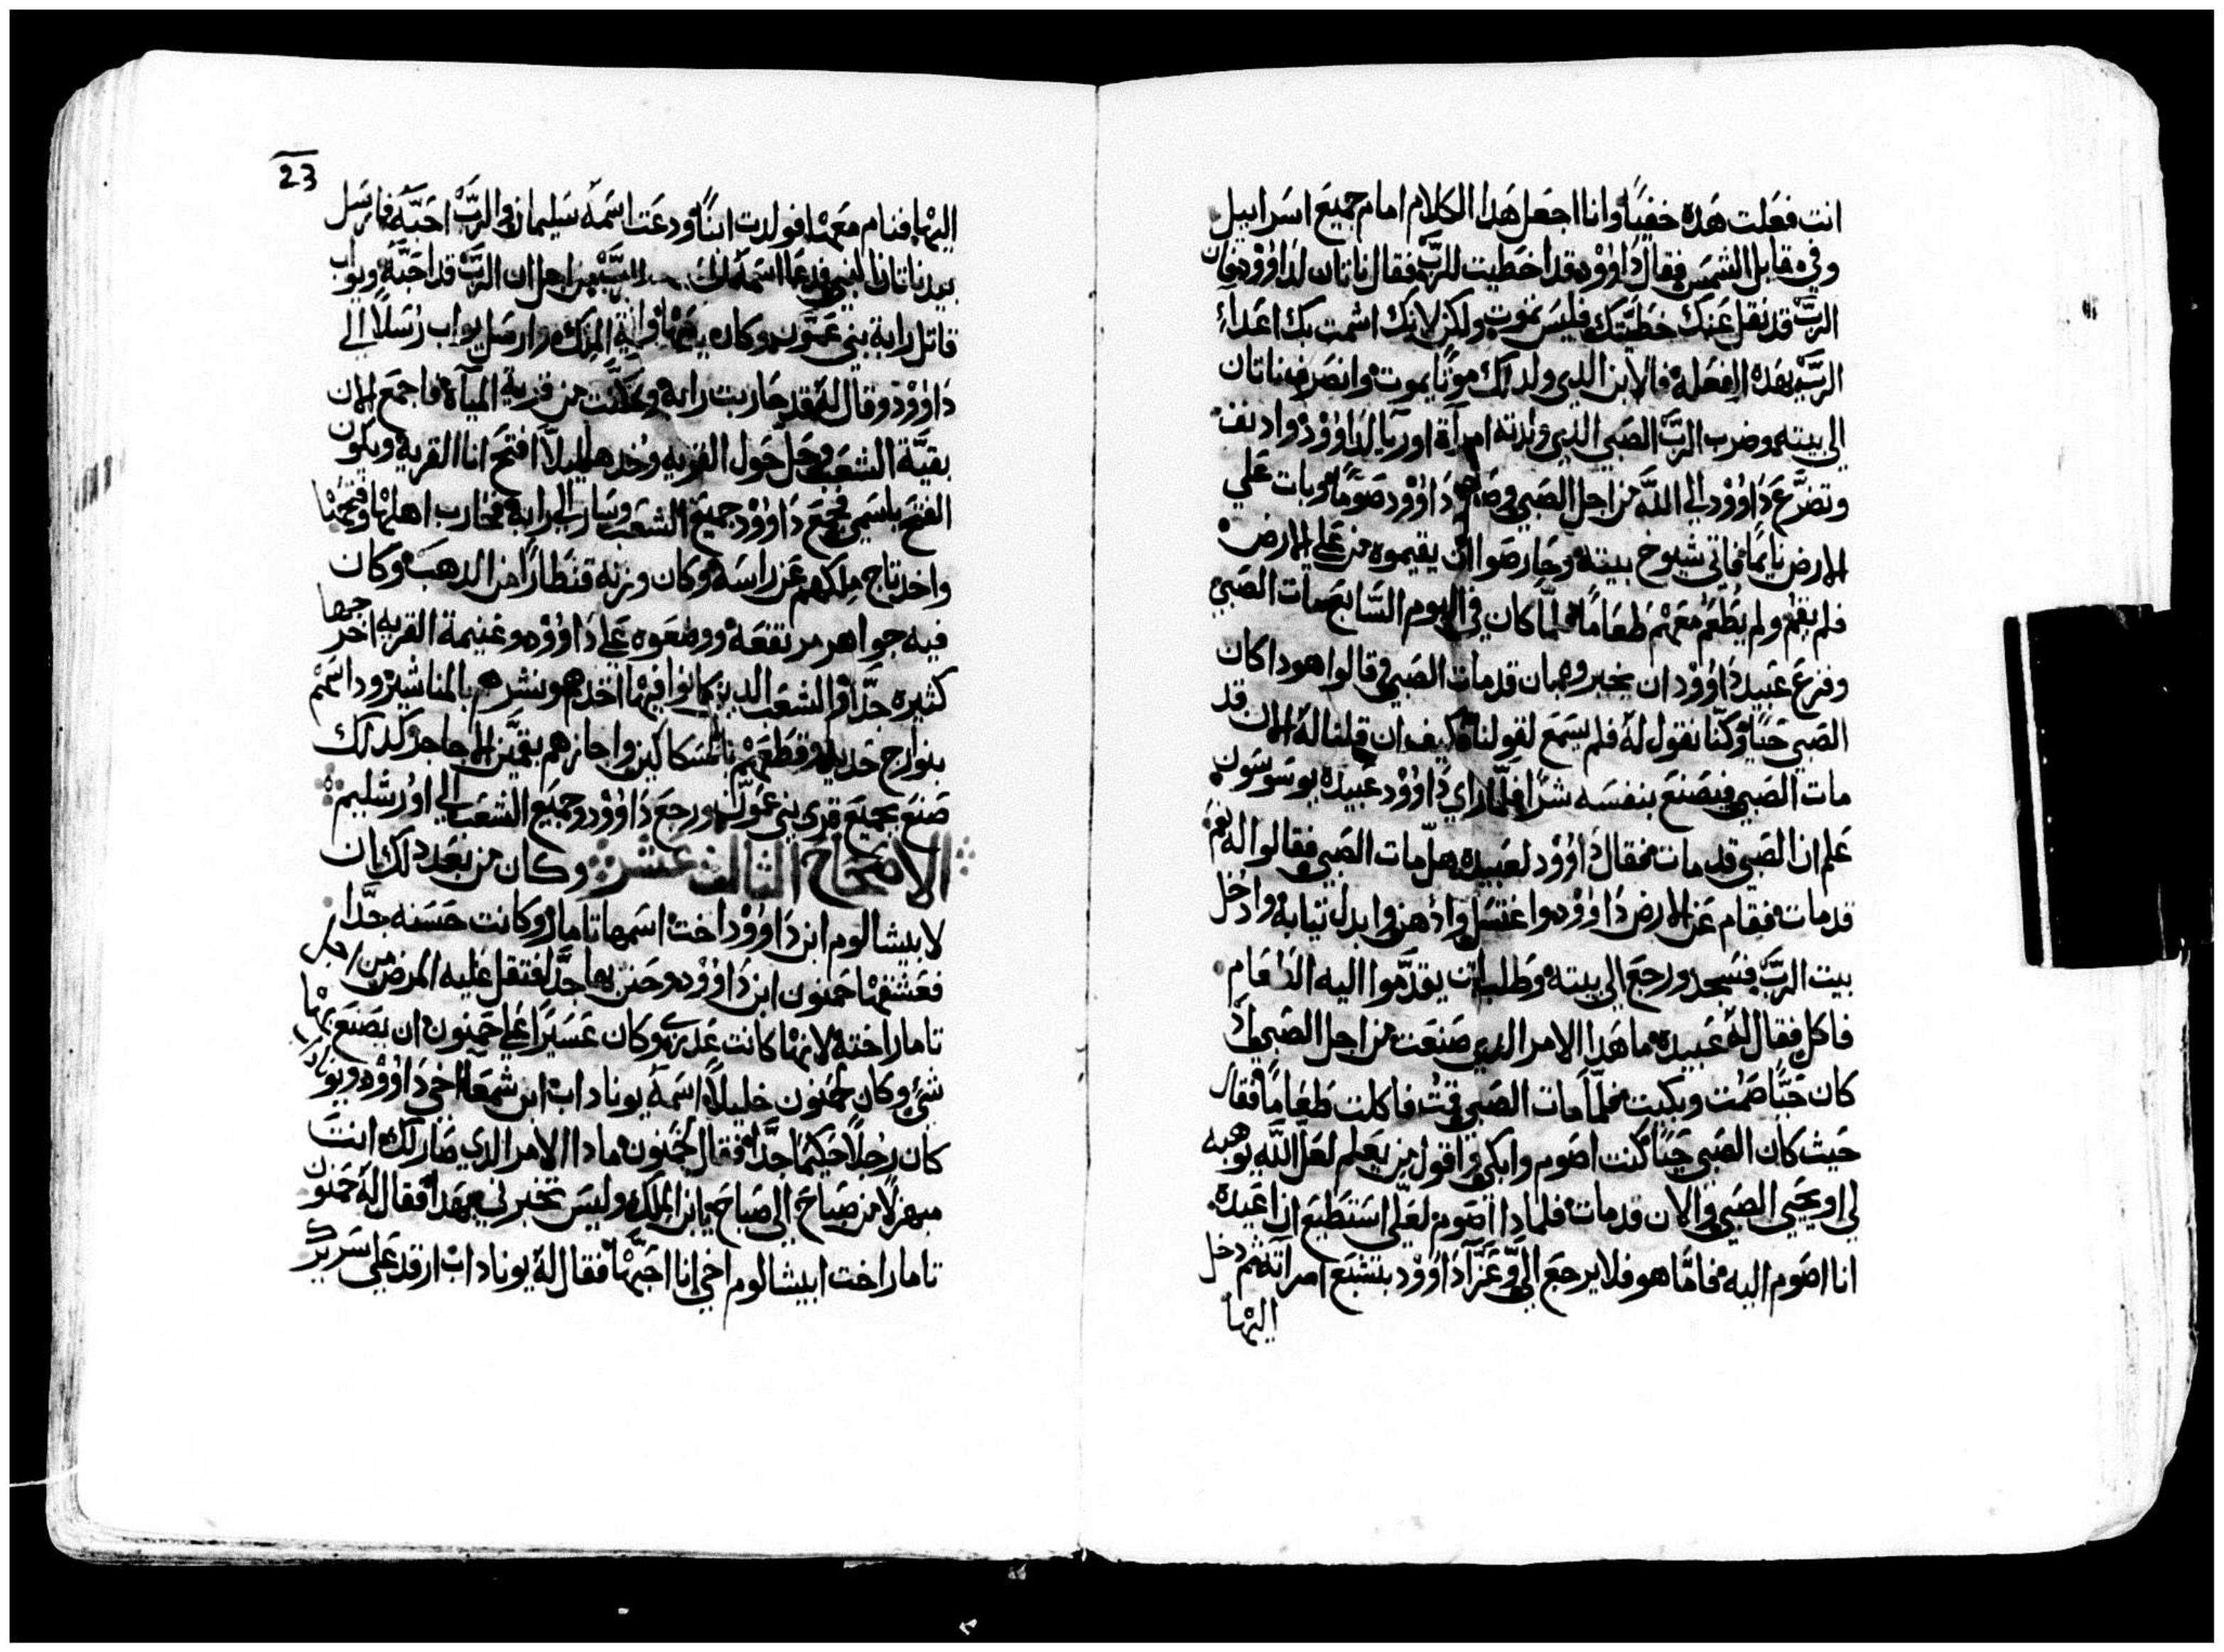 انت فعَلت هَذه خفيًا وانا اجعَل هَذا الكلام امام جميعَ اسَراييل
وفي مقابل الشمسَ فقال دَاوُوْد قد اخطيت للربّ فقال ناتان لدَاوُوْد فان
الربّ قد نقل عَنكَ خطيَّتك فليسَ تموت ولكن لانك اشمت بك اعَداء
الربّ بهَذه الفعَلة فالابن الذي ولد لك موتًا يموت وانصَرف ناتان
الى بيته وضرب الربّ الصَبي الذي ولدته امرآة اوريا لدَاوُوْد وادنف
وتضرَّعَ دَاوُوْد الى اللّه من اجل الصَبي وصَام دَاوُوْد صَومًا وبات عَلي
الارض نايمًا فاتى شيوخ بيته وحَارصَوا ان يقيموه من عَلى الارض
فلم يقم ولم يُطعَم معَهْم طعَامًا فلمَّا كان في اليوم السَّابعَ مات الصَبي
وفزعَ عَبيد دَاوُوْد ان يخبروه بان قد مات الصَبي قالوا هوذا كان
الصَبي حَيًا وكنَّا نقول لهُ فلم يسَمعَ لقولنا فكيف ان قلنا لهُ الان قد
مات الصَبي فيصَنعَ بنفسَه شرًا فلمّا راي دَاوُوْد عَبيده يوسَوسَون
عَلم ان الصَبي قد مات فقال دَاوُوْد لعَبيده هل مات الصَبي فقالوا له نعَم
قد مات فقام عَن الارض دَاوُوْد واغتسَل وادْهن وابدل تيابه وادْخل
بيت الربّ فسَجد ورجعَ الى بيته وطلب ان يقدَّموا اليه الطعَام
فاكل فقال لهُ عَبيده ما هَذا الامر الذي صَنعَت من اجل الصَبي اذْ
كان حَيًّا صُمت وبكيت فلمّا مات الصَبي قمْتُ فاكلت طعَامًا فقال
حَيث كان الصَبي حَيًا كنت اصَوم وابكي واقول من يعَلم لعَلّ اللّه يوهبه
لي او يحَيي الصَبي والان قد مات فلماذا اصَوم لعَلّي اسَتطيعَ ان اعَيده
انا اصَوم اليه فامَّا هو فلا يرجعَ اليَّ وعَزَّا دَاوُوْد بتشبعَ امرآته ثم دخل
اليهْا
23
اليهْا فنام معَهْا فولدت ابنًا ودعَت اسَمه سَليمان والربّ احَبَّه فارسَل
بيد ناتان النبي فدعَا اسَمهُ من اجل ان الربّ قد احَبَّهُ ويواب
قاتل رابة بني عَمّون وكان المملكه وارسَل يواب رُسَلًا الى
دَاوُوْد وقال لهُ قد حَاربت رابه وتملّكت من قرية المياه فاجمعَ الان
بقيَّة الشعَب وحَلّ حَول القريه وخُدها ليلّا افتح انا القريه ويكون
الفتح باسَمي فجمعَ دَاوُوْد جميعَ الشعَب وسَار الى رابة فحَارب اهلهْا وفتحَهْا
واخد تاج ملكهم عَن راسَه وكان وزنه قنطارًا من الدهبَ وكان
فيه جواهر مرتفعَة ووضعَوه عَلى دَاوُوْد وغنيمة القريه اخرجها
كثيره جدًّا والشعَب الدين كانوا فيهْا اخدهم ونشرهم بالمناشير وداسَهْم
بنوارج حَديد وقطعَهْم بالسَكاكين واجازهم بقمّين الاجاجر وكدلك
صَنعَ بجميعَ قرى بني عَمّون ورجعَ دَاوُوْد وجميعَ الشعَب الى اورشليم
الاصحَاح الثالث عشر وكان من بعَد دلك ان
لابيشالوم ابن دَاوُوْد اخت اسَمها تامار وكانت حَسَنه جدًّا
فعَشقهْا حَمنون ابن دَاوُوْد وحَزن بها جدًّا فتقل عَليه المرض من اجل
تامار اخته لانهْا كانت عَدرى وكان عَسَيرًا عَلى حَمنون ان يصَنعَ بهْا
شيءٌ وكان لحَمنون خليلًا اسَمهُ يوناداب ابن شمعَا اخي دَاوُوْد ويوناداب
كان رجلًا حَكيمًا جدًّا فقال لحَمنون مادا الامر الذي صَار لك انت
مبهزلًا من صَباحَ الى صَباحَ يا ابن الملك وليسَ تخبرني بهَذا فقال لهُ حَمنون
تامار اخت ابيشالوم اخي انا احَبّهْا فقال لهُ يوناداب ارقد عَلى سَريرك